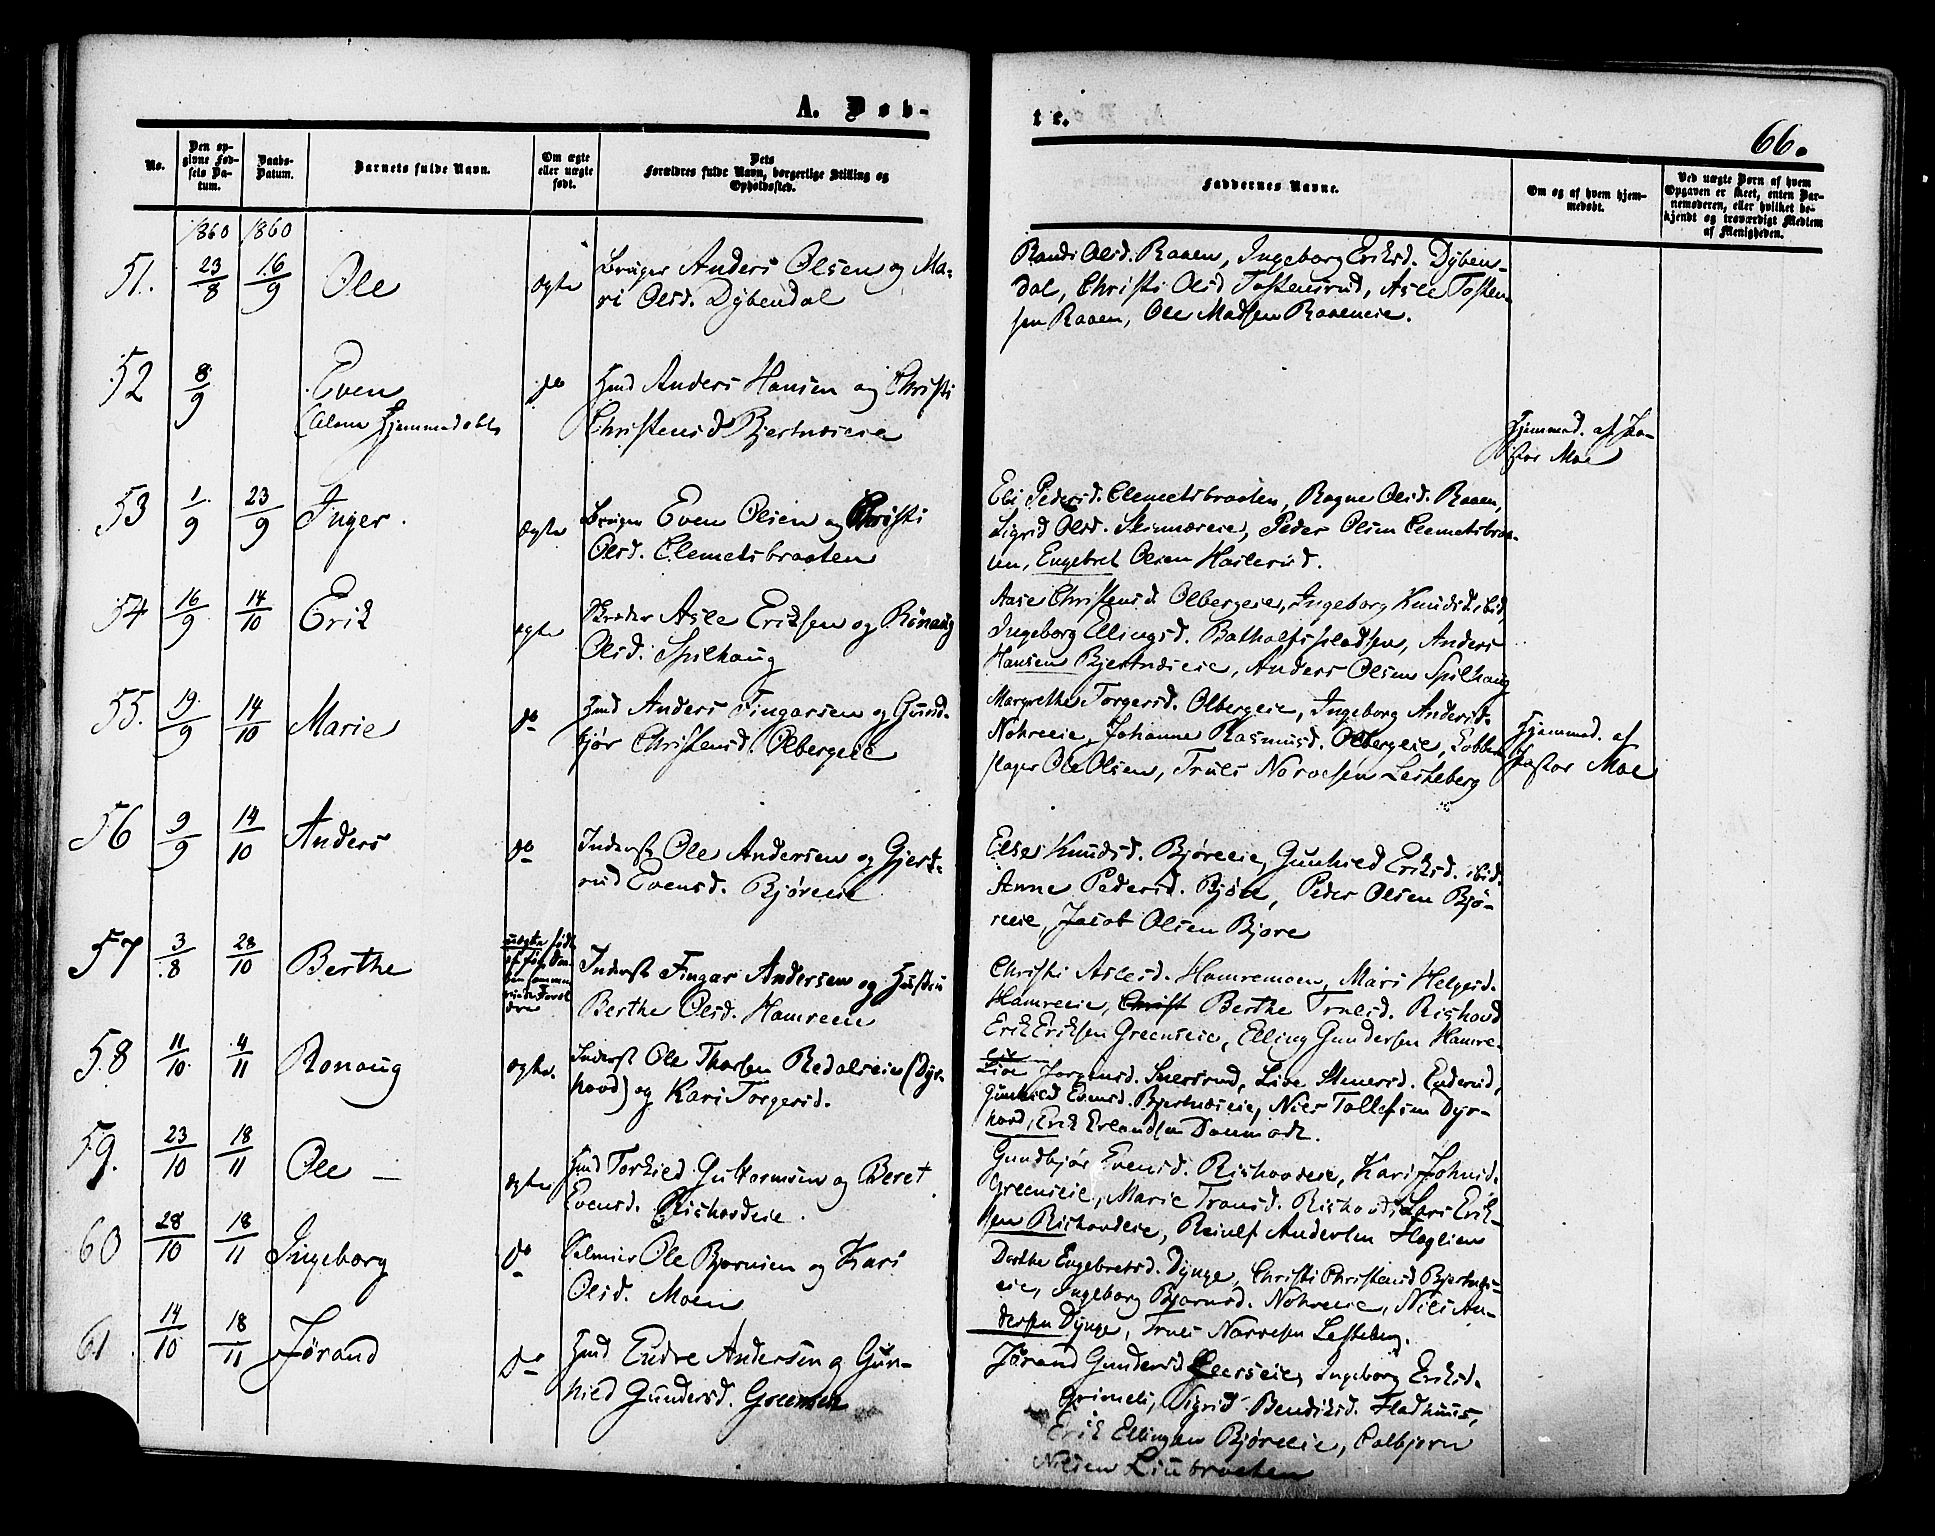 A. Døb-
te.
66.
No.
Den op-
givne Fød-
sels Da-
tum.
Daabs-
Datum.
Barnets fulde Navn.
Om ægte
eller uægte
født.
Dets
Forældres fulde Navn, borgerlige Stilling og
Opholdssted.
Faddernes Navne.
Om og af hvem hjem-
medøbt.
Ved uægte Børn af hvem
Opgaven er skeet, enten Bar-
nemoderen, eller hvilket be-
kjendt og troværdigt Medlem
af Menigheden.
1860 1860
51. 23/8 16/9 Ole ægte Bruger Anders Olsen og Ma-
ri Olsd. Dybendal
Randi Olsd. Raaen, Ingeborg Eriksd. Dyben-
dal, Christi Olsd Tostensrud, Asle Tosten-
sen Raaen, Ole Madsen Raaeneie.
52 8/9 Even do Hmd Anders Hansen og Christi
(Alene Hjemmedøbt
Christensd Bjertnæseie
Hjemmed. af Pa-
stor Moe
53 1/9 23/9 Inger. ægte Bruger Even Olsen og Christi
Olsd. Clemetsbraaten
Eli Pedersd. Clemetsbraaten, Ragne Olsd. Raaen,
Sigrid Olsd. Skinnæseie, Peder Olsen Clemetsbraa-
ten, Engebret Olsen Haslerud.
54 16/9 14/10 Erik ægte Skræder Asle Eriksen og Rønaug
Olsd. Spilhaug
Aase Christensd. Olbergeie, Ingeborg Knudsd. ibid,
Ingeborg Ellingsd. Batholfspladsen, Anders
Hansen Bjertnæseie, Anders Olsen Spilhaug
55. 19/9 14/10 Marie do Hmd Anders Fingarsen og Gund-
bjør Christensd Olbergeie
Margrethe Torgersd. Olbergeie, Ingeborg Andersd.
Nohreeie, Johanne Rasmusd. Olbergeie, Kobber-
slager Ole Olsen, Truls Narvesen Lesteberg
Hjemmed. af
Pastor Moe
56 9/9 14/10 Anders do Inderst Ole Andersen og Gjert-
rud Evensd. Bjøreeie
Else Knudsd. Bjøreeie, Gunhild Eriksd. ibid.
Anne Pedersd. Bjøre, Peder Olsen Bjø-
reeie, Jacob Olsen Bjøre
57 3/8 28/10 Berthe uægte født
Inderst Fingar Andersen og Hustru
Berthe Olsd. Hamreeie
Christi Aslesd. Hamremoen, Mari Helgesd.
Hamreeie, Christ Berthe Trulsd. Rishovd
Erik Eriksen Greenseie, Elling Gundersen Hamre-
eie
58 11/10 4/11 Rønaug ægte. Inderst Ole Thorsen Redalseie (Dyr-
hovd) og Kari Torgersd.
Live Jørgensd. Snersrud, Live Stenersd. Enderud,
Gunhild Evensd. Bjertnæseie, Niels Tollefsen Dyr-
hovd, Erik Erlandsen Danmark.
59. 23/10 18/11 Ole — ægte Hmd Torkild Guttormsen og Beret
Evensd. Rishovdeie.
Gundbjør Evensd. Rishovdeie, Kari Johnsd.
Greenseie, Marie Trondsd. Rishovd, Lars Erik-
sen Rishovdeie, Reiulf Andersen Haglien
60 28/10 18/11 Ingeborg do Selveier Ole Bjørnsen og Kari
Olsd. Moen
Dorthe Engebretsd. Dynge, Christi Christensd Bjertnæs-
eie, Ingeborg Bjørnsd. Nohreeie, Niels An-
dersen Dynge, Truls Narvesen Lesteberg.
61. 14/10 18/11 Jørand do Hmd Endre Andersen og Gun-
hild Gundersd. Greenseie
Jørand Gundersd Leerseie, Ingeborg Eriksd.
Grimeli, Sigrid Bendiksd. Fladhuus,
Erik Ellingsen Bjøreeie, Colbjørn
Nilsen Liubraaten